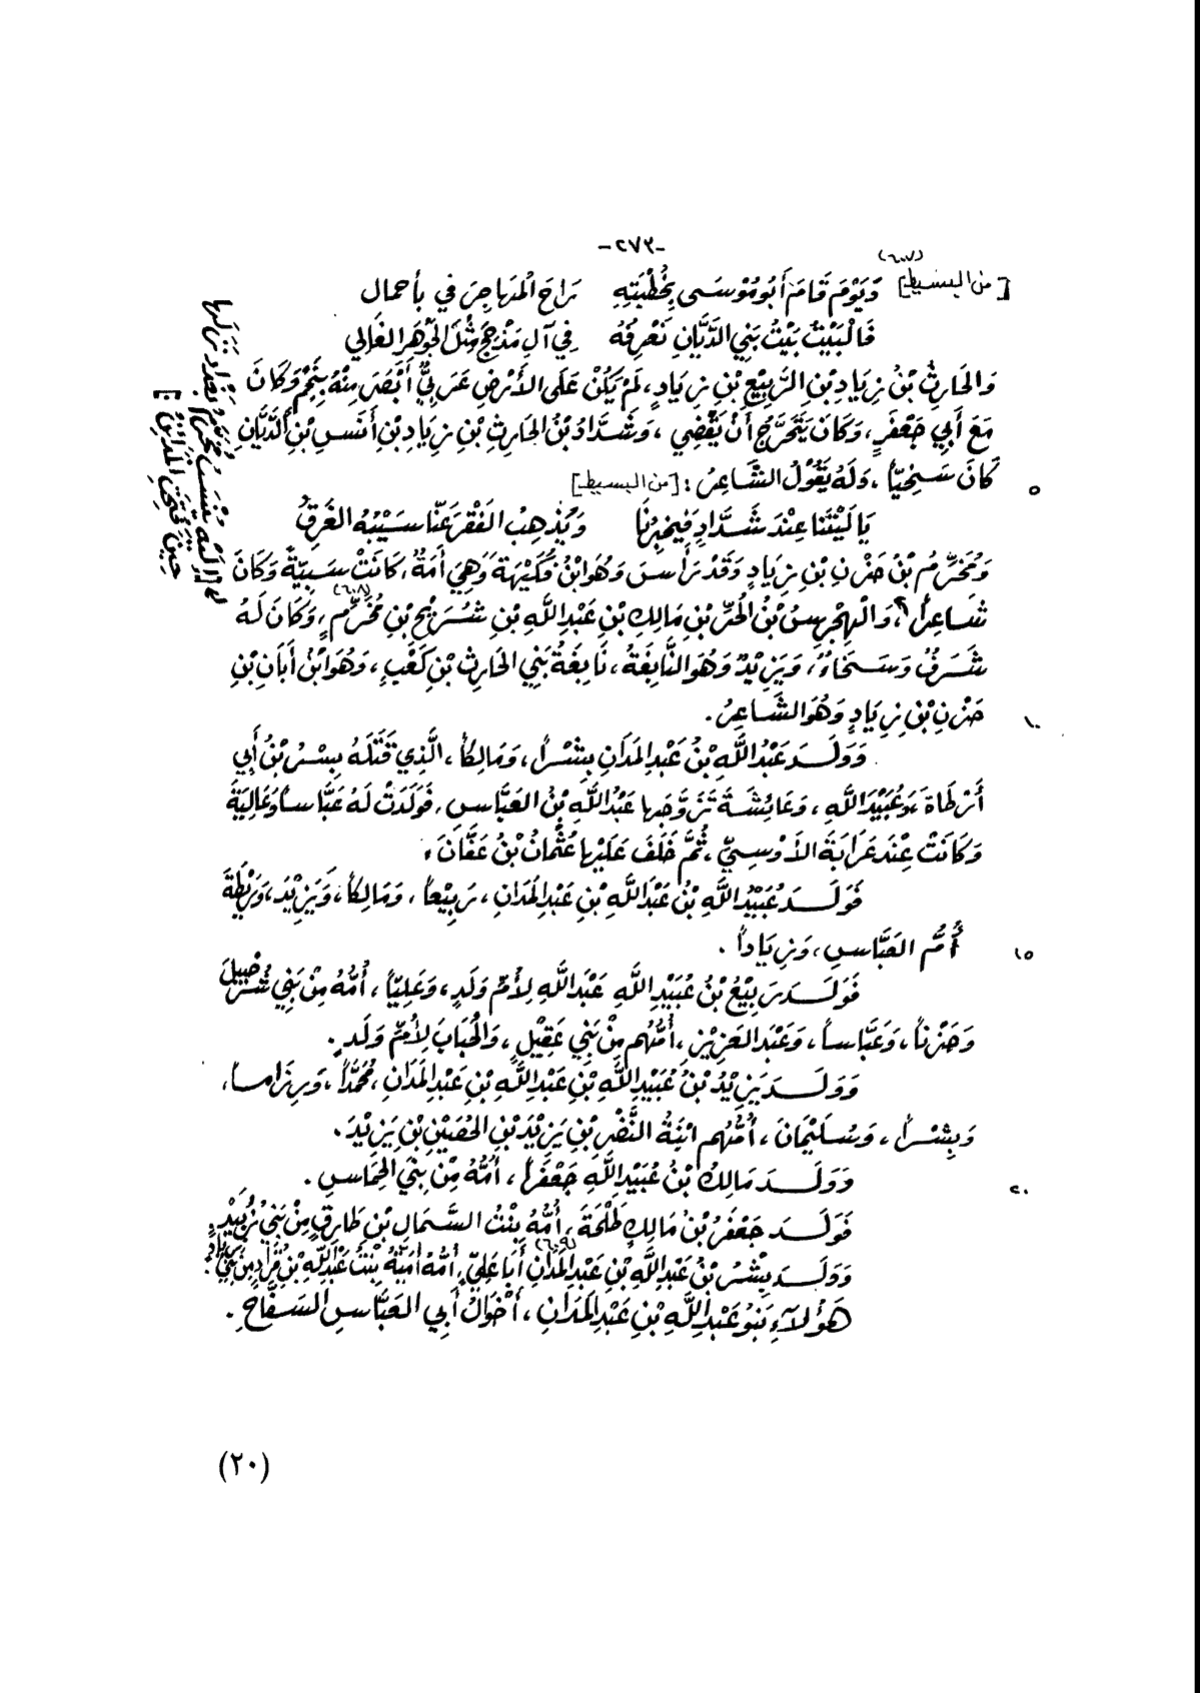 -٢٧٣-
(٦٠٧)
[من البسيط] وَيَوْمَ قَامَ أَبُو مُوْسَى بِخُطْبَتِهِ رَاحَ الْمُهَاجِرُ في بأَحمالِ
فَالْبَيْتُ بَيْتُ بَنِي الدَّيَّانِ نَعْرِفُهُ في آلِ مَذْحِجَ مِثْلَ الجَوْهَرِ الغَالِي
وَالحَارِثُ بْنُ زِيَادِ بْنِ الرَّبِيْعِ بْنِ زِيَادٍ، لَمْ يَكُنْ عَلَى الأَرْضِ عَرَبِيٌّ أَبْصَرَ مِنْهُ بِنَجْمٍ وَكَانَ
مَعَ أَبِي جَعْفَرٍ، وَكَانَ يَتَحَرَّجُ أَنْ يَقْضِي، وَشَدَّادُ بْنُ الحَارِثِ بْنِ زِيَادِ بْنِ أَنَسِ بْنِ الدَّيَّانِ
كَانَ سَخِيّاً، وَلَهُ يَقُوْلُ الشَّاعِرُ: [من البسيط]
٥
يَا لَيْتَنَا عِنْدَ شَدَّادٍ فَيُخْبِرُنَا وَيُذْهِبُ الفَقْرَ عَنَّا سَيْبُهُ الغَرِقُ
وَمُخَرِّمُ بْنُ حَزْنِ بْنِ زِيَادٍ وَقَدْ رَأَسَ وَهُوَ ابْنُ فُكَيْهَةَ وَهِيَ أَمَةٌ، كَانَتْ سَبِيَّةً وَكَانَ
شَاعِراً، وَالْهِجْرِسُ بْنُ الحُرِّ بْنِ مَالِكِ بْنِ عَبْدِ اللَّهِ بْنِ شُرَيْحِ بْنِ مُخَرِّمٍ (٦٠٨)، وَكَانَ لَهُ
شَرَفٌ وَسَخَاءٌ، وَيَزِيْدُ وَهُوَ النَّابِغَةُ، نَابِغَةُ بَنِي الحَارِثِ بْنِ كَعْبٍ، وَهُوَ ابْنُ أَبَانَ بْنِ
حَزْنِ بْنِ زِيَادٍ وَهُوَ الشَّاعِرُ.
١٠
وَوَلَـدَ عَبْدُ اللَّهِ بْنُ عَبْدِ المَدَانِ بِشْراً، وَمَالِكاً، الَّذِي قَتَلَهُ بُسْرُ بْنُ أَبِي
أَرْطَاةَ، وَعُبَيْدَ اللَّهِ، وَعَائِشَةَ تَزَوَّجَها عَبْدُ اللَّهِ بْنُ العَبَّاسِ، فَوَلَدَتْ لَهُ عَبَّاساً وَعَالِيَةَ
وَكَانَتْ عِنْدَ عَرَابَةَ الأَوْسِيِّ، ثُمَّ خَلَفَ عَلَيْها عُثْمَانُ بْنُ عَفَّانَ.
فَوَلَـدَ عُبَيْدُ اللَّهِ بْنُ عَبْدِ اللَّهِ بْنِ عَبْدِ المَدَانِ، رَبِيْعاً، وَمَالِكاً، وَيَزِيْدَ، وَرَيْطَةَ
أُمَّ العَبَّاسِ، وَزِيَاداً.
١٥
فَوَلَـدَ رَبِيْعُ بْنُ عُبَيْدِ اللَّهِ عَبْدَ اللَّهِ لِأُمِّ وَلَدٍ، وَعَلِيّاً، أُمُّهُ مِنْ بَنِي شُرَحْبِيلَ
وَحَزْناً، وَعَبَّاساً، وَعَبْدَ العَزِيْزِ، أُمُّهُم مِنْ بَنِي عَقِيْلٍ، وَالْحُبَابَ لِأُمِّ وَلَدٍ.
وَوَلَـدَ يَزِيْدُ بْنُ عُبَيْدِ اللَّهِ بْنِ عَبْدِ اللَّهِ بْنِ عَبْدِ المَدَانِ، مُحَمَّداً، وَرِزَاماً،
وَبِشْراً، وَسُلَيْمَانَ، أُمُّهُم ابْنَةُ النَّضْرِ بْنِ يَزِيْدَ بْنِ الحُصَيْنِ بْنِ يَزِيْدَ.
وَوَلَـدَ مَالِكُ بْنُ عُبَيْدِ اللَّهِ جَعْفَراً، أُمُّهُ مِنْ بَنِي الحِمَاسِ.
٢٠
فَوَلَـدَ جَعْفَرُ بْنُ مَالِكٍ طَلْحَةَ، أُمُّهُ بِنْتُ السَّمَالِ بْنِ طَارِقٍ مِنْ بَنِي زُبَيْدٍ.
وَوَلَـدَ بِشْرُ بْنُ عَبْدِ اللَّهِ بْنِ عَبْدِ المَدَانِ (٦٠٩) أَبَا عَلِيٍّ، أُمُّهُ أُمَيَّةُ بِنْتُ عَبْدِ اللَّهِ بْنِ مُرَادٍ مِنْ بَنِي زِيَادٍ.
هَؤُلاَءِ بَنُو عَبْدِ اللَّهِ بْنِ عَبْدِ المَدَانِ، أَخْوَالُ أَبِي العَبَّاسِ السَّفَّاحِ.
[إِلَيْهِ يُنْسَبُ مُخَرِّمُ بَغْدَادَ نَزَلَها
حِيْنَ فُتِحَتِ المَدَائِنُ]
(٢٠)